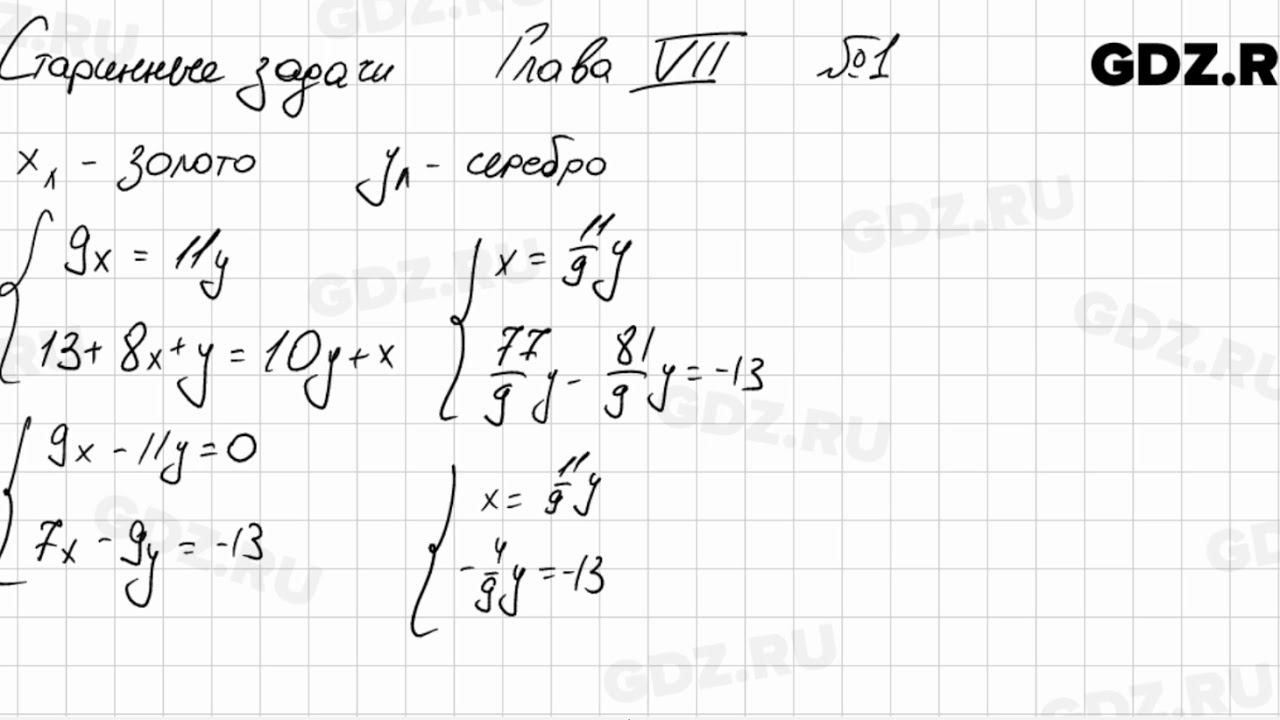 Старинные задачи Глава VII №1
GDZ.R
x л - золото y л - серебро
9x = 11y
13 + 8x + y = 10y + x
9x - 11y = 0
7x - 9y = -13
x = 11/9 y
77/9 y - 81/9 y = -13
x = 11/9 y
- 4/9 y = -13
GDZ.RU
GDZ.RU
GDZ.RU
GDZ.RU
GDZ.RU
GDZ.RU
GDZ.RU
GDZ.RU